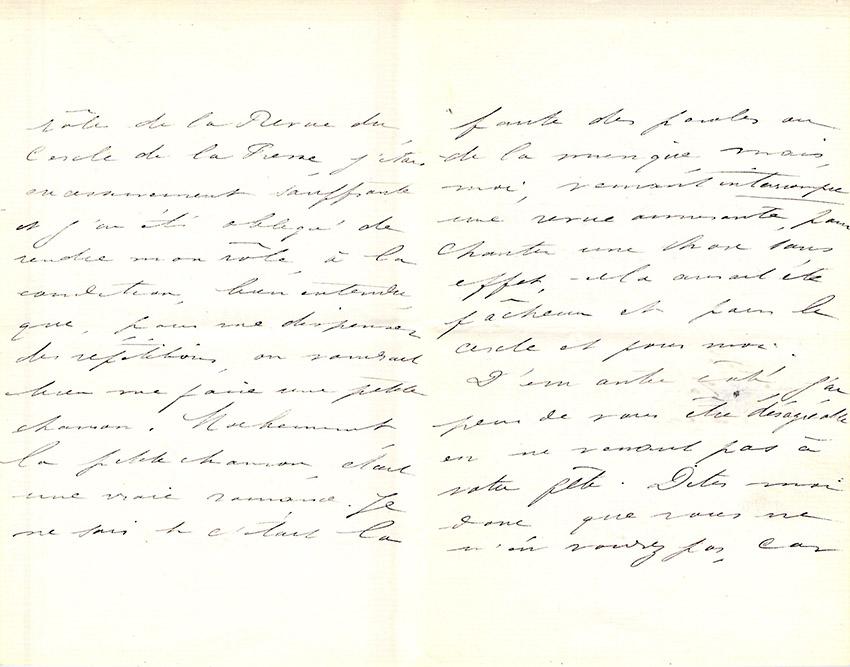 rôle de la Revue du
Cercle de la Presse j'étais
souffrante
et j'ai été obligé de
rendre mon rôle, à la
condition, bien entendu
que, pour me dispenser
des répétitions, on voudrait
bien me faire une petite
chanson. Malheureusement
la petite chanson, était
une vraie romance. Je
ne sais si c'était la
faute des paroles ou
de la musique, mais,
moi, venant interrompre
une revue amusante, pour
chanter une chose sans
effet, cela aurait été
fâcheux et pour le
cercle et pour moi.
D'un autre côté j'ai
peur de vous être désagréable
en ne venant pas à
votre fête. Dites moi
donc que vous ne
m'en voudrez pas, car